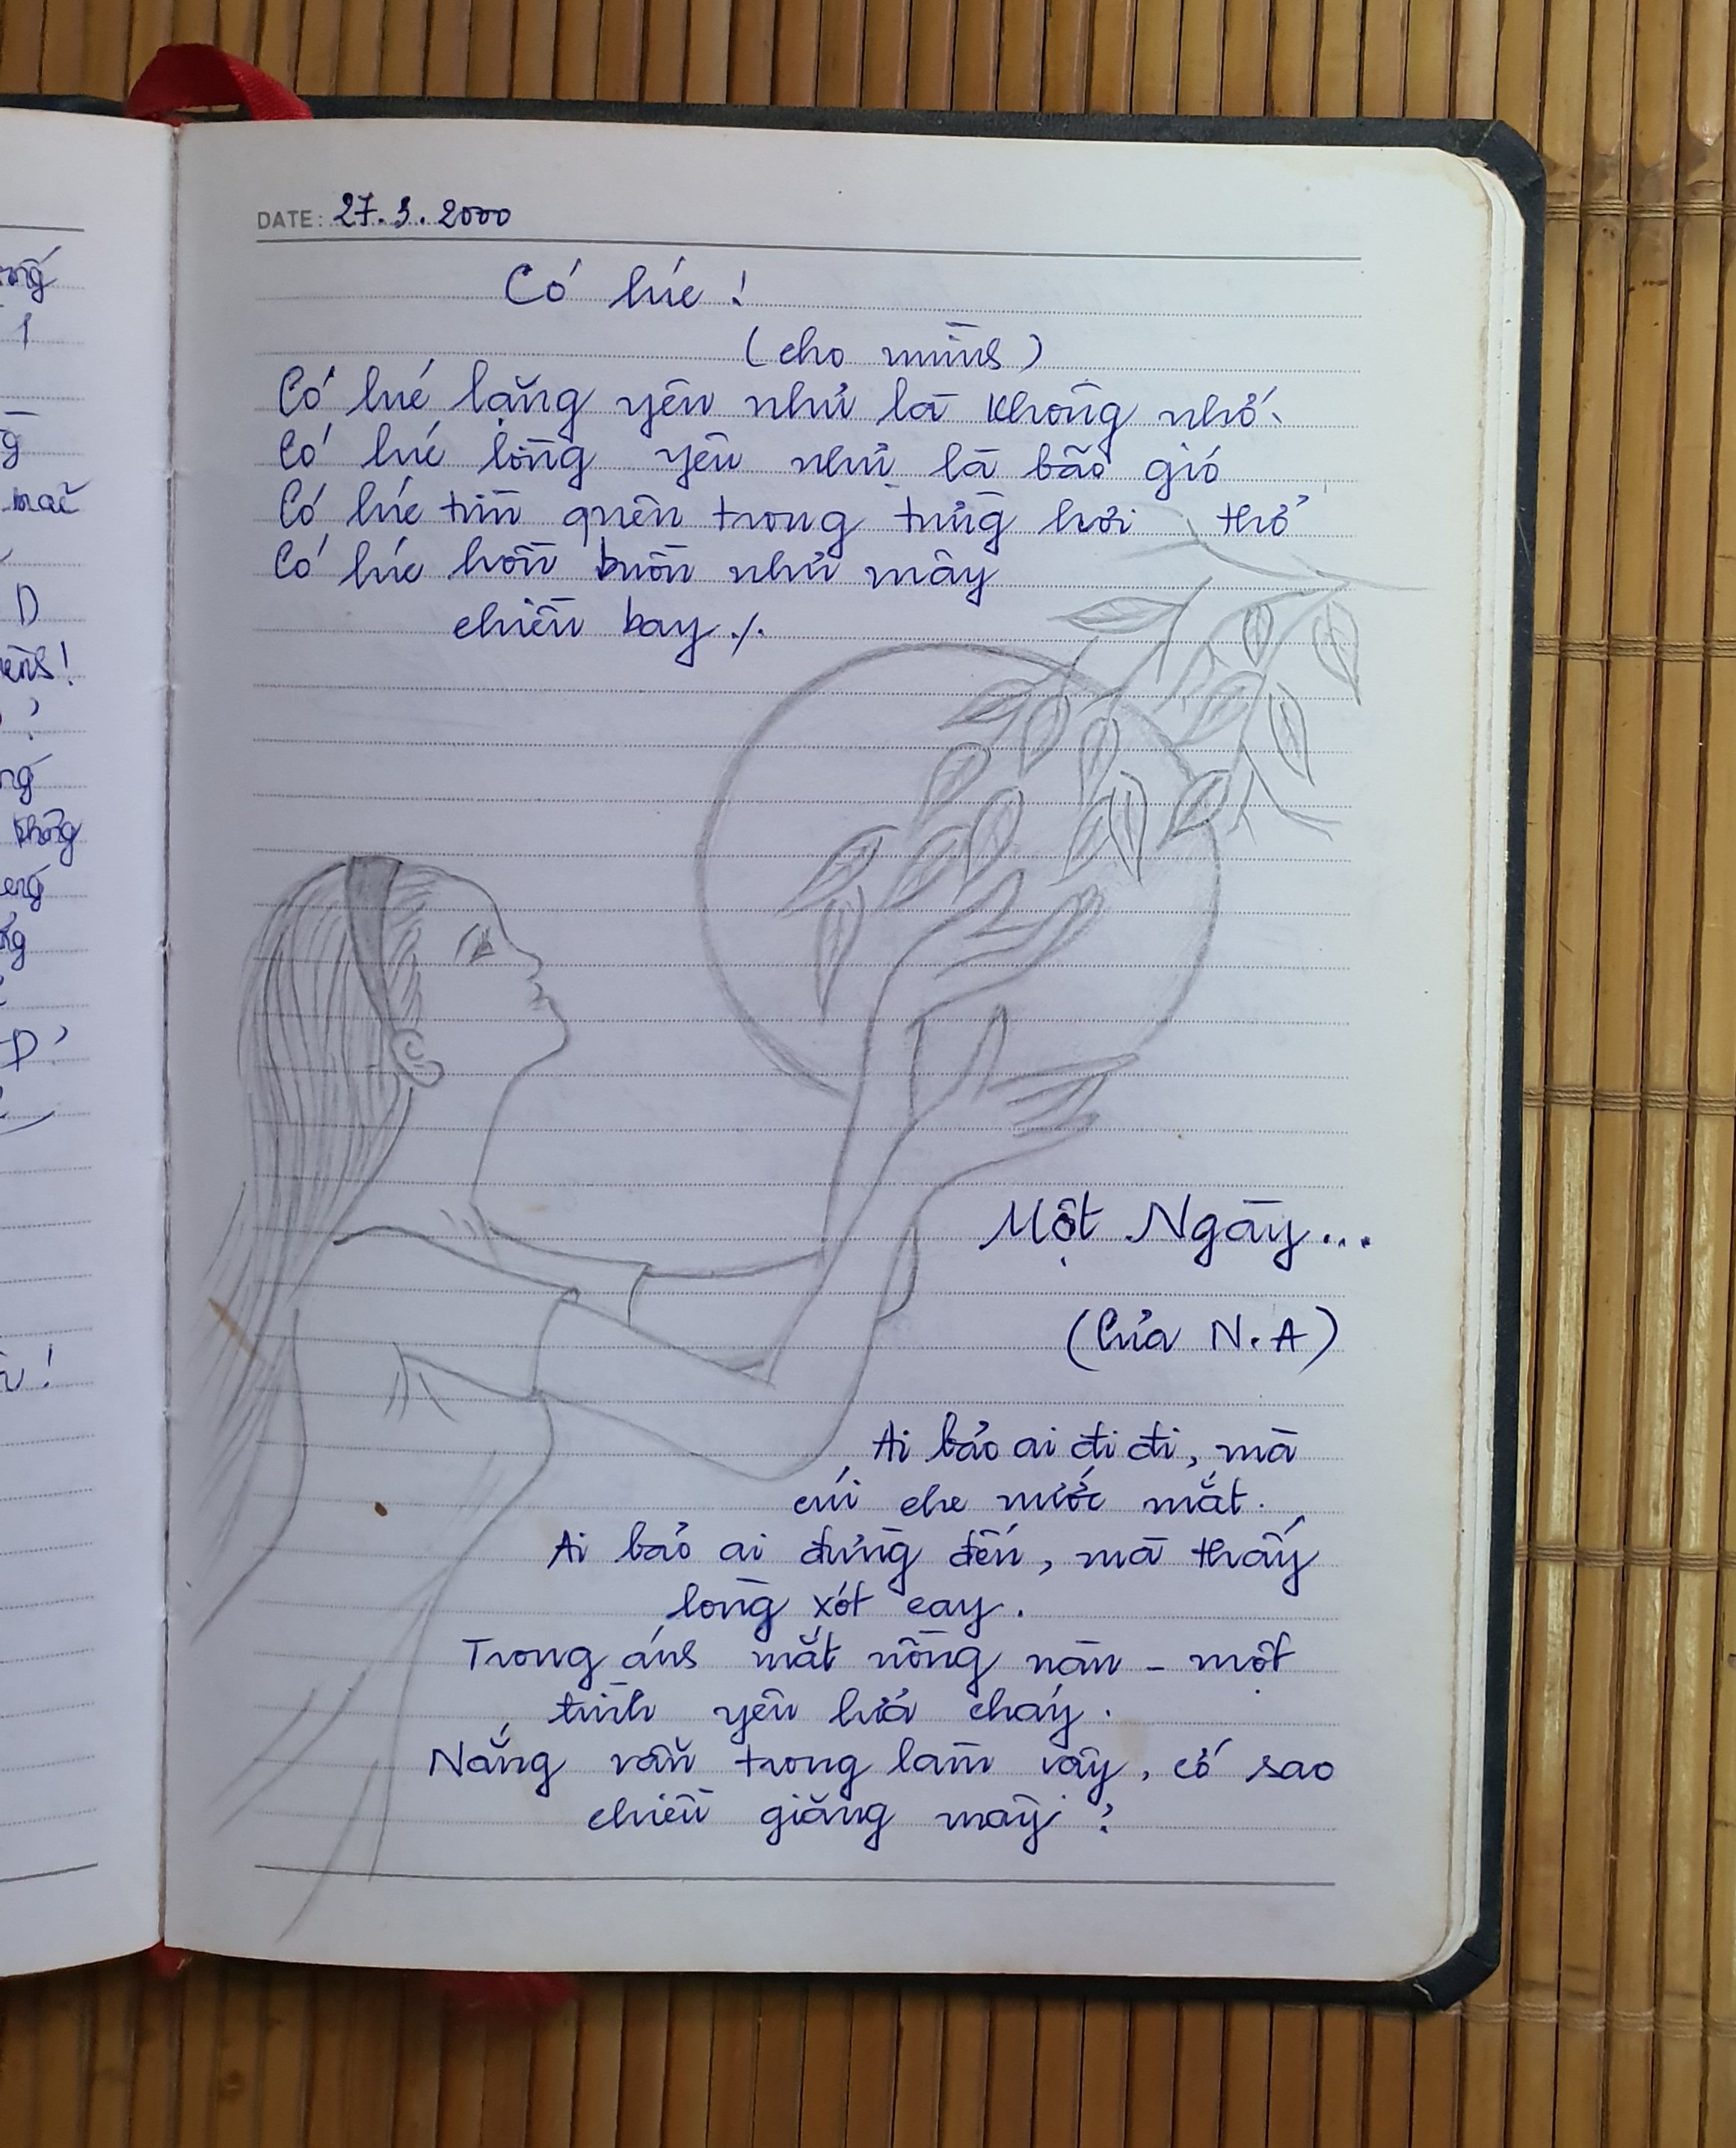 DATE: 27.3.2000
Có lúc !
(cho mình)
Có lúc lặng yên như là không nhớ
Có lúc lòng yên như là bão gió
Có lúc tìm quên trong từng hơi thở
Có lúc hồn buồn như mây
chiều bay ./.
Một Ngày...
(Của N.A)
Ai bảo ai đi đi, mà
cúi che nước mắt.
Ai bảo ai đừng đến, mà thấy
lòng xót cay.
Trong ánh mắt nồng nàn - một
tình yêu lửa cháy.
Nắng vẫn trong lắm vậy, cớ sao
chiều giăng mây ?
ông
1
g
mai
D
?
không
D?
!